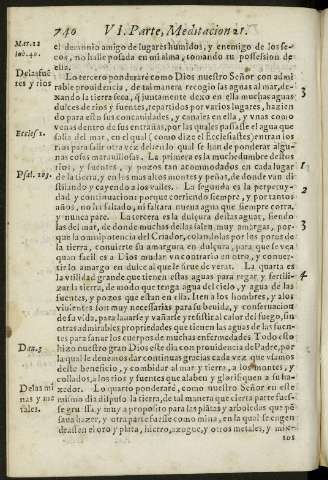 740 VI. Parte, Meditacion 21.
Mat. 12
luc. 40.
el demonio amigo de lugares humidos, y enemigo de los se-
cos, no halle posada en mi alma, tomando tu possession de
ella.
De las fuẽ
tes y rios
Lo tercero ponderarè como Dios nuestro Señor con admi
rable prouidencia, de tal manera recogio las aguas al mar, de-
xando la tierra seca, q̃ juntamente dexò en ella muchas aguas
dulces de rios y fuentes, repartidos por varios lugares, hazien
do para esto sus concauidades, y canales en ella, y vnas como
venas dentro de sus entrañas, por las quales passasse el agua que
Eccles. 1.
salia del mar, en el qual (como dize el Ecclesiastes) entran los
rios para salir otra vez del: en lo qual se han de ponderar algu-
nas cosas marauillosas. La primera es la muchedumbre destos
rios, y fuentes, y pozos tan acomodados en cada lugar
Psal. 103.
de la tierra, y en los mas altos montes y peñas, de donde van di
stilando y cayendo a los valles. La segunda es la perpetuy-
dad y continuacion: porque corriendo siempre, y por tantos
años, no ha faltado, ni faltará nunca agua que siempre corra,
y nunca pare. La tercera es la dulçura destas aguas, siendo
las del mar, de donde muchas dellas salen, muy amargas, por-
que la omnipotencia del Criador, colandolas por los poros de
la tierra, conuirte su amargura en dulçura, para que se vea
quan facil es a Dios mudar vn contrario en otro, y conuer-
tir lo amargo en dulce al que le sirue de veras. La quarta es
la vtilidad grande que tienen estas aguas para regar, y fertili-
zar la tierra, de modo que tenga agua del cielo, y agua de las
fuentes, y pozos que estan en ella. Iten a los hombres, y a los
viuientes son muy necessarias para su beuida, y conseruacion
de su vida, para lauarse y vañarse y resistir al calor del fuego, sin
otras admirables propriedades que tienen las aguas de las fuen-
tes para sanar los cuerpos de muchas enfermedades. Todo esto
Dan. 3
hizo nuestro gran Dios este dia con prouidencia de Padre, por
la qual le deuemos dar continuas gracias cada vez que vsamos
deste beneficio, y combidar al mar y tierra, a los montes, y
collados, a los rios y fuentes que alaben y glorifiquen a su ha-
De las mi
nas y me
tales.
zedor. Lo quarto ponderarè, como nuestro Señor en este
mismo dia dispuso la tierra, de tal manera que cierta parte fues-
se gruessa, y muy a proposito para las plãtas y arboledas que pẽ
saua hazer, y otra parte fuesse como mina, en la qual se engen
drassen el oro y plata, hierro, azogue, y otros metales, y mix-
tos
3
1
2
3
4